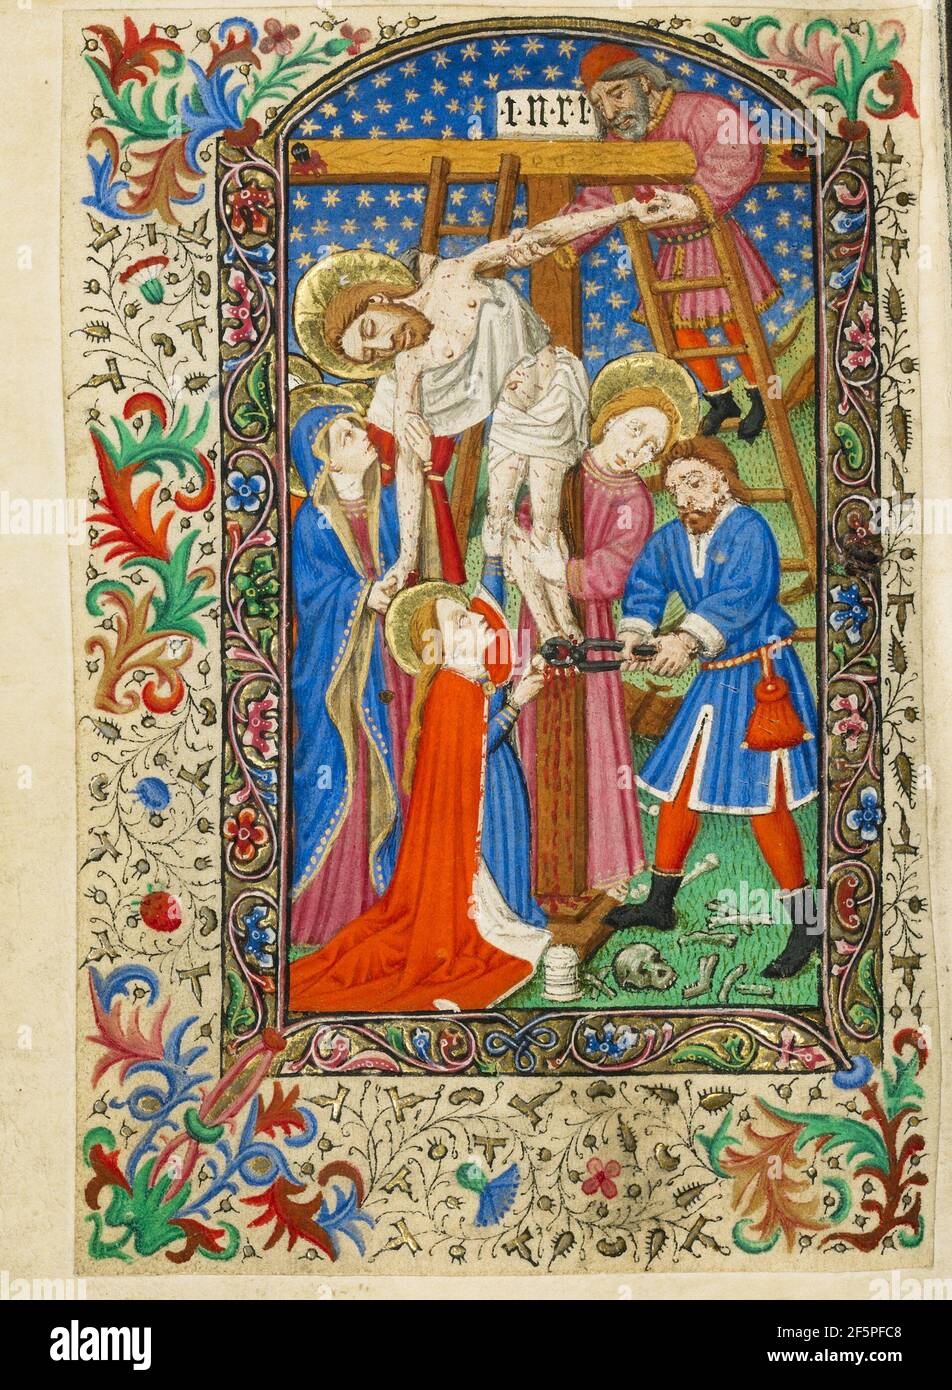 ·I·N·R·I
alamy
Image ID: 2F5PFC8
www.alamy.com